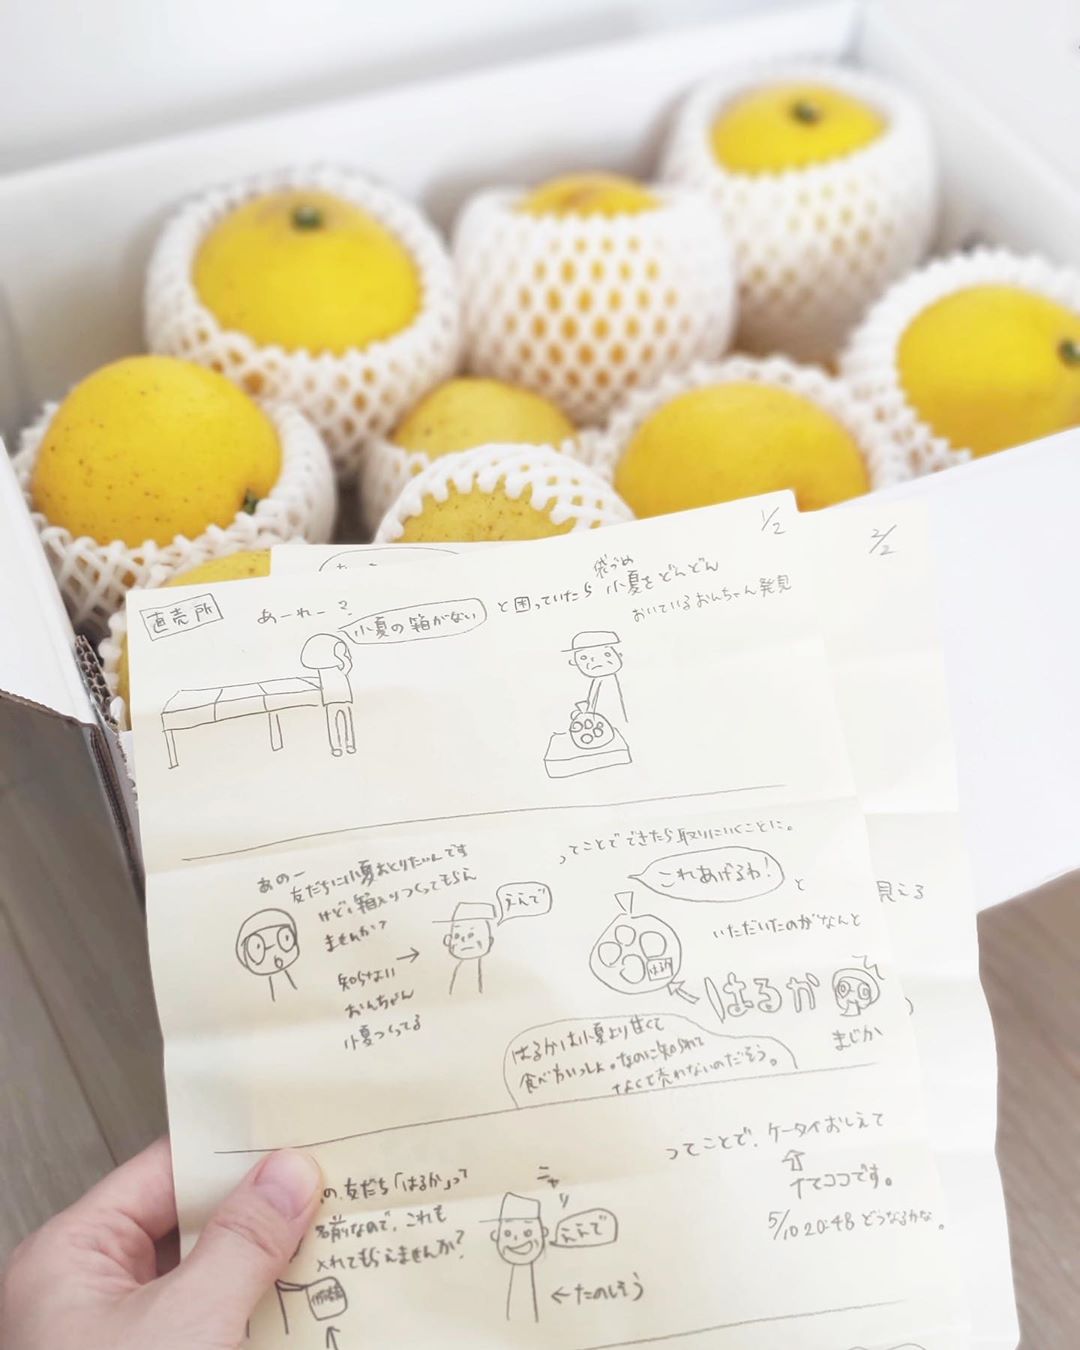 1/2
2/2
直売所
あーれー?
小夏の箱がない
と困っていたら
袋づめ
小夏をどんどん
おいているおんちゃん発見
あのー
友だちに小夏おくりたいんです
けど、箱入りつくってもらえ
ませんか?
ええで
知らない
おんちゃん
小夏つくってる
ってことでできたら取りにいくことに。
これあげるわ!
と
いただいたのがなんと
はるか
はるか
まじか
はるかは小夏より甘くて
食べ方いっしょ。なのに知られて
なくて売れないのだそう。
見える
の、友だち「はるか」って
名前なので、これも
入れてもらえませんか?
ニヤリ
ええで
←たのしそう
ってことで、ケータイおしえて
⇧
今ココです。
5/10 20:48 どうなるかな。